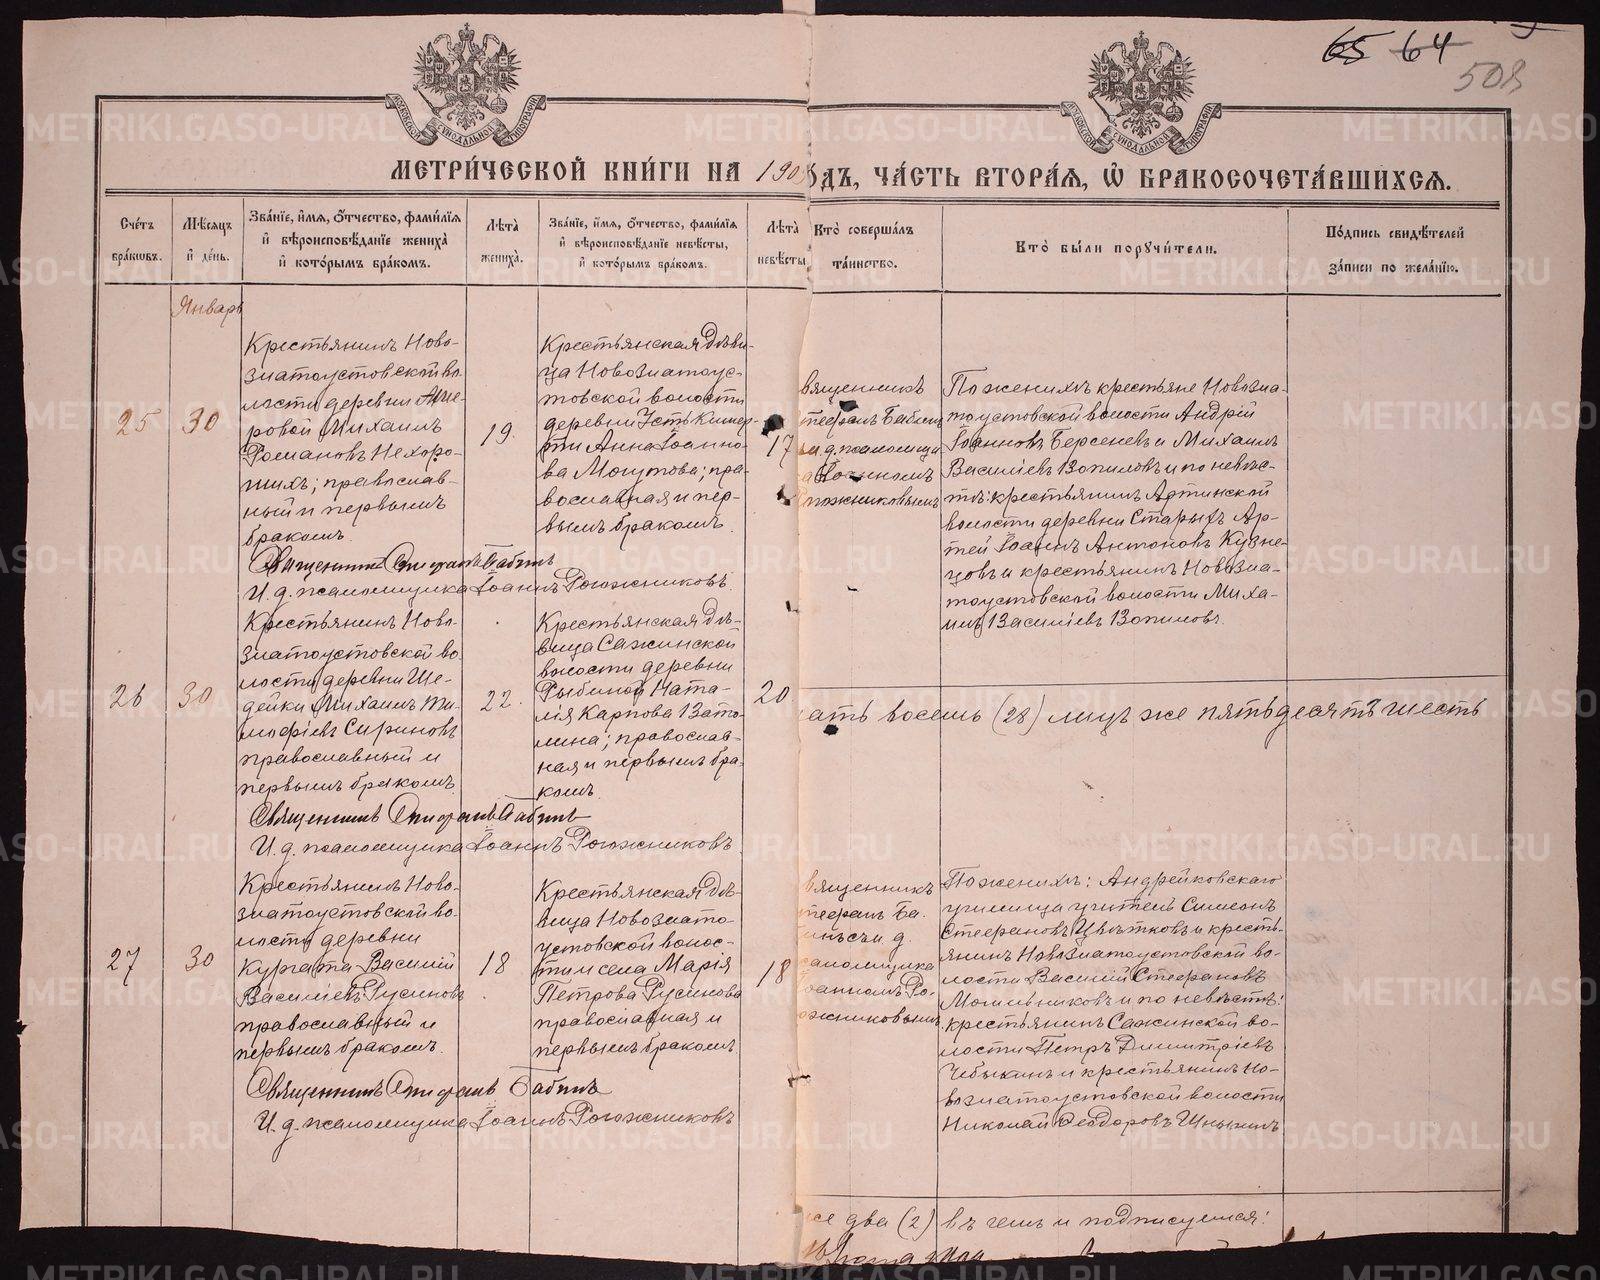 65 64
508
МЕТРИЧЕСКОЙ КНИГИ НА 190
ОДЪ, ЧАСТЬ ВТОРАЯ, Ѡ БРАКОСОЧЕТАВШИХСЯ.
Счетъ браковъ.
Мѣсяцъ и день.
Званіе, имя, отчество, фамилія и вѣроисповѣданіе жениха и которымъ бракомъ.
Лѣта жениха.
Званіе, имя, отчество, фамилія и вѣроисповѣданіе невѣсты, и которымъ бракомъ.
Лѣта невѣсты
Кто совершалъ таинство.
Кто были поручители.
Подпись свидѣтелей записи по желанію.
Январь
25
30
Крестьянинъ Ново-
златоустовской во
лости деревни
ровой Михаилъ
Романовъ Нехоро-
шихъ; православ-
ный и первымъ
бракомъ.
19.
Крестьянская дѣви-
ца Новозлатоус-
товской волости
деревни Усть Кишер-
ти Анна Іоанно-
ва Могутова; пра-
вославная и пер-
вымъ бракомъ.
17
вященникъ
Бабинъ
и. д. псаломщи
Іоанномъ
ожниковымъ
По женихѣ крестьяне Новозла-
тоустовской волости Андрій
Іоанновъ Берсеневъ и Михаилъ
Василіевъ Вопиловъ и по невѣс-
тѣ: крестьянинъ Артинской
волости деревни Старыхъ Ар-
тей Іоаннъ Антоновъ Кузне-
цовъ и крестьянинъ Новозла-
тоустовской волости Миха-
илъ Василіевъ Вопиловъ.
Священникъ Епифанъ Бабинъ
И. д. псаломщика Іоаннъ Рогожниковъ.
26
30
Крестьянинъ Ново-
златоустовской во
лости деревни Ше-
дейки Михаилъ Ти-
мофіевъ Сириновъ
православный и
первымъ бракомъ.
22.
Крестьянская дѣ-
вица Сажинской
волости деревни
Рыбиной Ната-
лія Карпова Вато-
лина; православ-
ная и первымъ бра-
комъ.
20
ать восемь (28) лицъ же пятьдесятъ шесть
Священникъ Епифанъ Бабинъ
И. д. псаломщика Іоаннъ Рогожниковъ.
27
30
Крестьянинъ Ново-
златоустовской во-
лости деревни
Кургата Василій
Василіевъ Русиновъ
православный и
первымъ бракомъ.
18
Крестьянская дѣ-
вица Новозлато-
устовской волос-
ти и села Марія
Петрова Русинова
православная и
первымъ бракомъ
18
вященникъ
Ба-
и. д.
саломщика
Іоанномъ Ро-
ожниковымъ
По женихѣ: Андрейковскаго
училища учитель Симеонъ
Стефановъ Цвѣтковъ и кресть-
янинъ Новозлатоустовской во-
лости Василій Стефановъ
Могильниковъ и по невѣстѣ:
крестьянинъ Сажинской во-
лости Петръ Димитріевъ
Чебыкинъ и крестьянинъ Но-
возлатоустовской волости
Николай Ѳеодоровъ Шныпинъ
Священникъ Епифанъ Бабинъ
И. д. псаломщика Іоаннъ Рогожниковъ
все два (2) въ чемъ и подписуемся:
METRIKI.GASO-URAL.RU